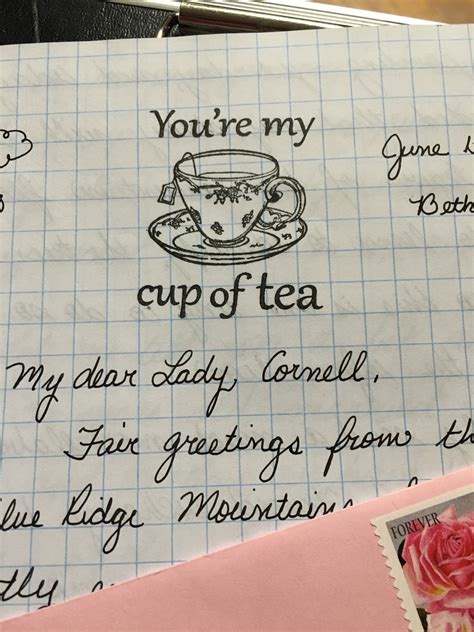 You're my
cup of tea
June
Beth
My dear Lady Cornell,
Fair greetings from th
lue Ridge Mountains
tly
FOREVER